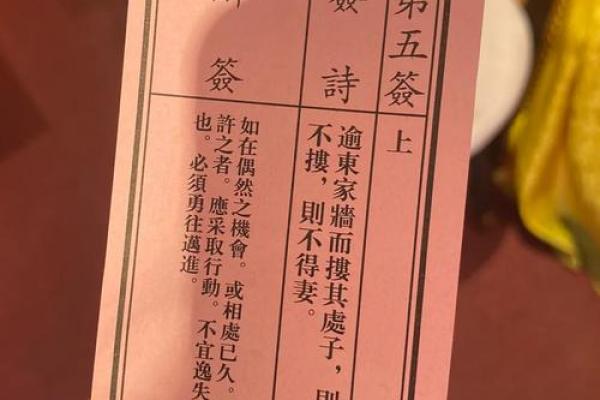 第五簽
上
簽詩
逾東家牆而摟其處子，則
不摟，則不得妻。
簽
如在偶然之機會。或相處已久。
許之者。應采取行動。不宜逸失
也。必須勇往邁進。